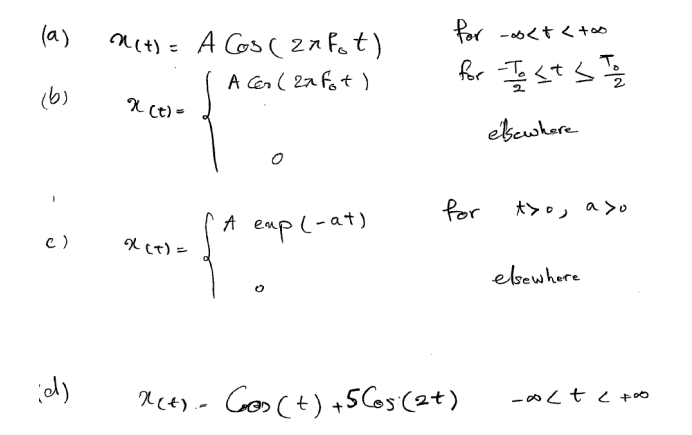 (a) x(t) = A Cos(2πf₀t) for -∞<t<+∞
(b) x(t) = { A Cos(2πf₀t) for -T₀/2 ≤ t ≤ T₀/2
0 elsewhere
c) x(t) = { A exp(-at) for t>0, a>0
0 elsewhere
d) x(t) = Cos(t) + 5Cos(2t) -∞<t<+∞